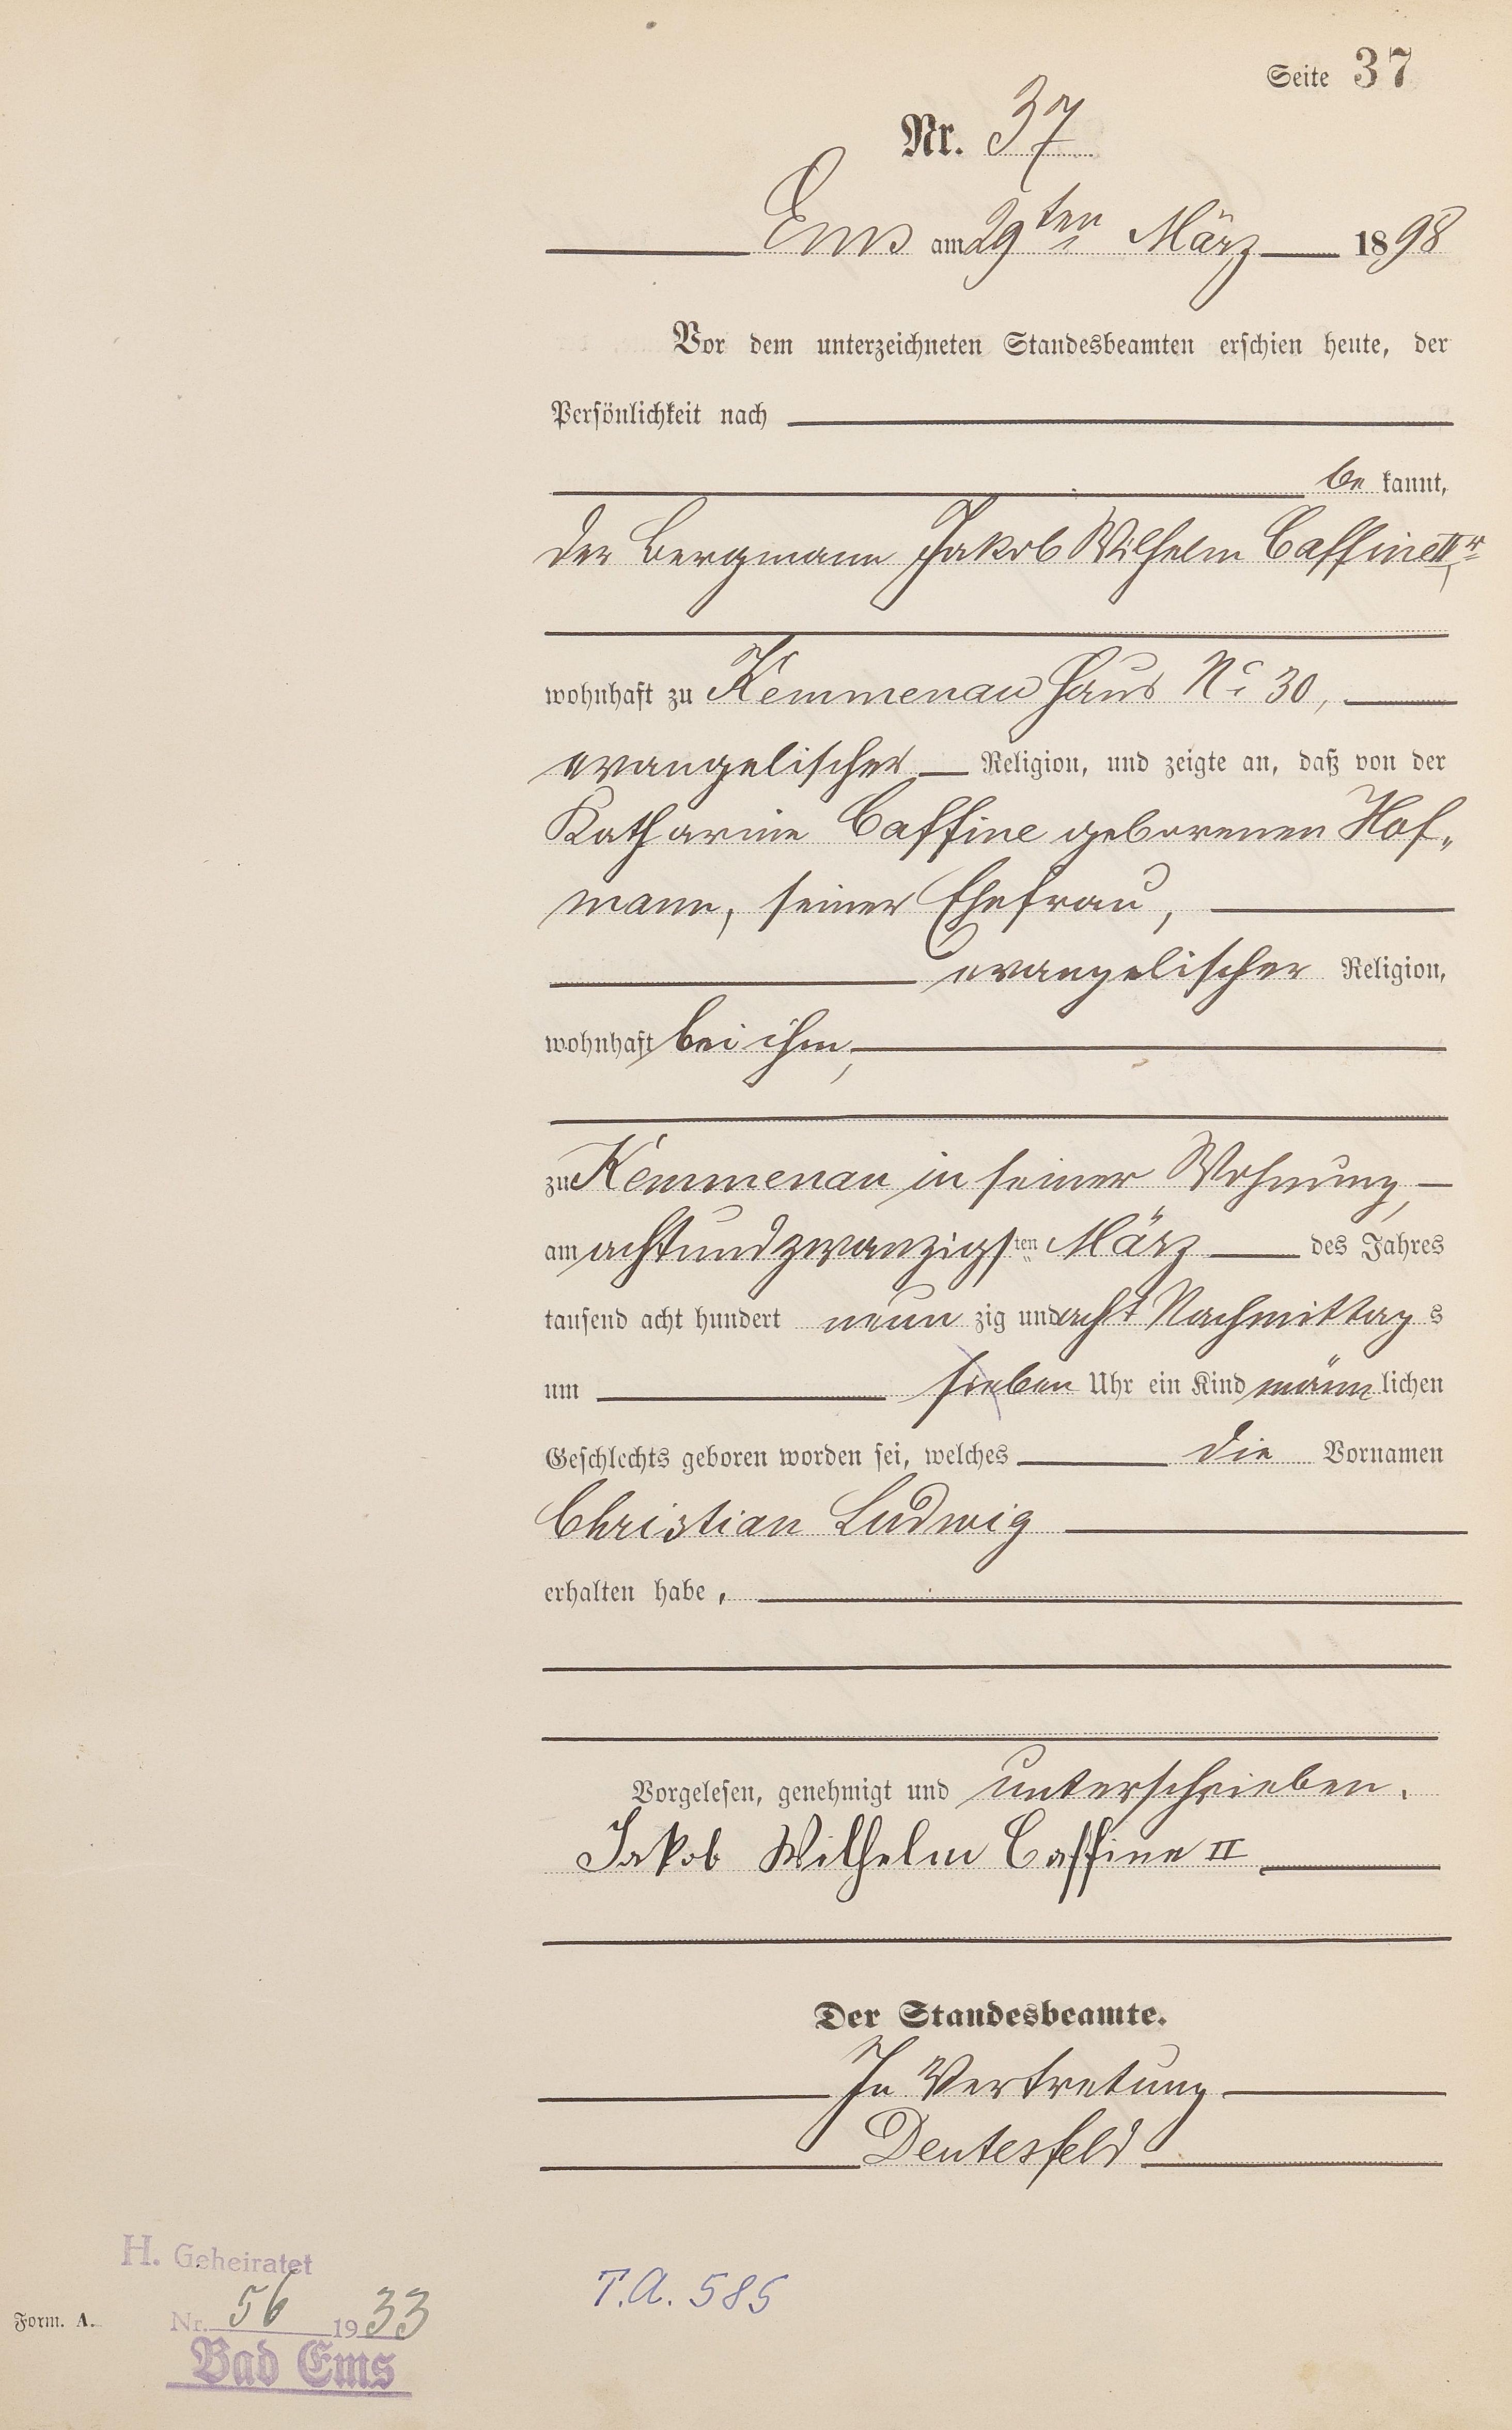 Seite 37
Nr. 37
Ems am 29ten März 1898
Vor dem unterzeichneten Standesbeamten erschien heute, der
Persönlichkeit nach
be kannt,
der Bergmann Jakob Wilhelm Caffine IIr,
wohnhaft zu Kemmenau Haus No 30,
evangelischer Religion, und zeigte an, daß von der
Katharine Caffine geborenen Hof„
mann, seiner Ehefrau,
evangelischer Religion,
wohnhaft bei ihm,
zu Kemmenau in seiner Wohnung,
am achtundzwanzigsten März des Jahres
tausend acht hundert neun zig und acht Nachmittag s
um sieben Uhr ein Kind männ lichen
Geschlechts geboren worden sei, welches die Vornamen
Christian Ludwig
erhalten habe.
Vorgelesen, genehmigt und unterschrieben.
Jakob Wilhelm Caffine II
Der Standesbeamte.
In Vertretung
Deutesfeld
H. Geheiratet
Nr. 56 1933
Bad Ems
Form. A.
T.A. 585